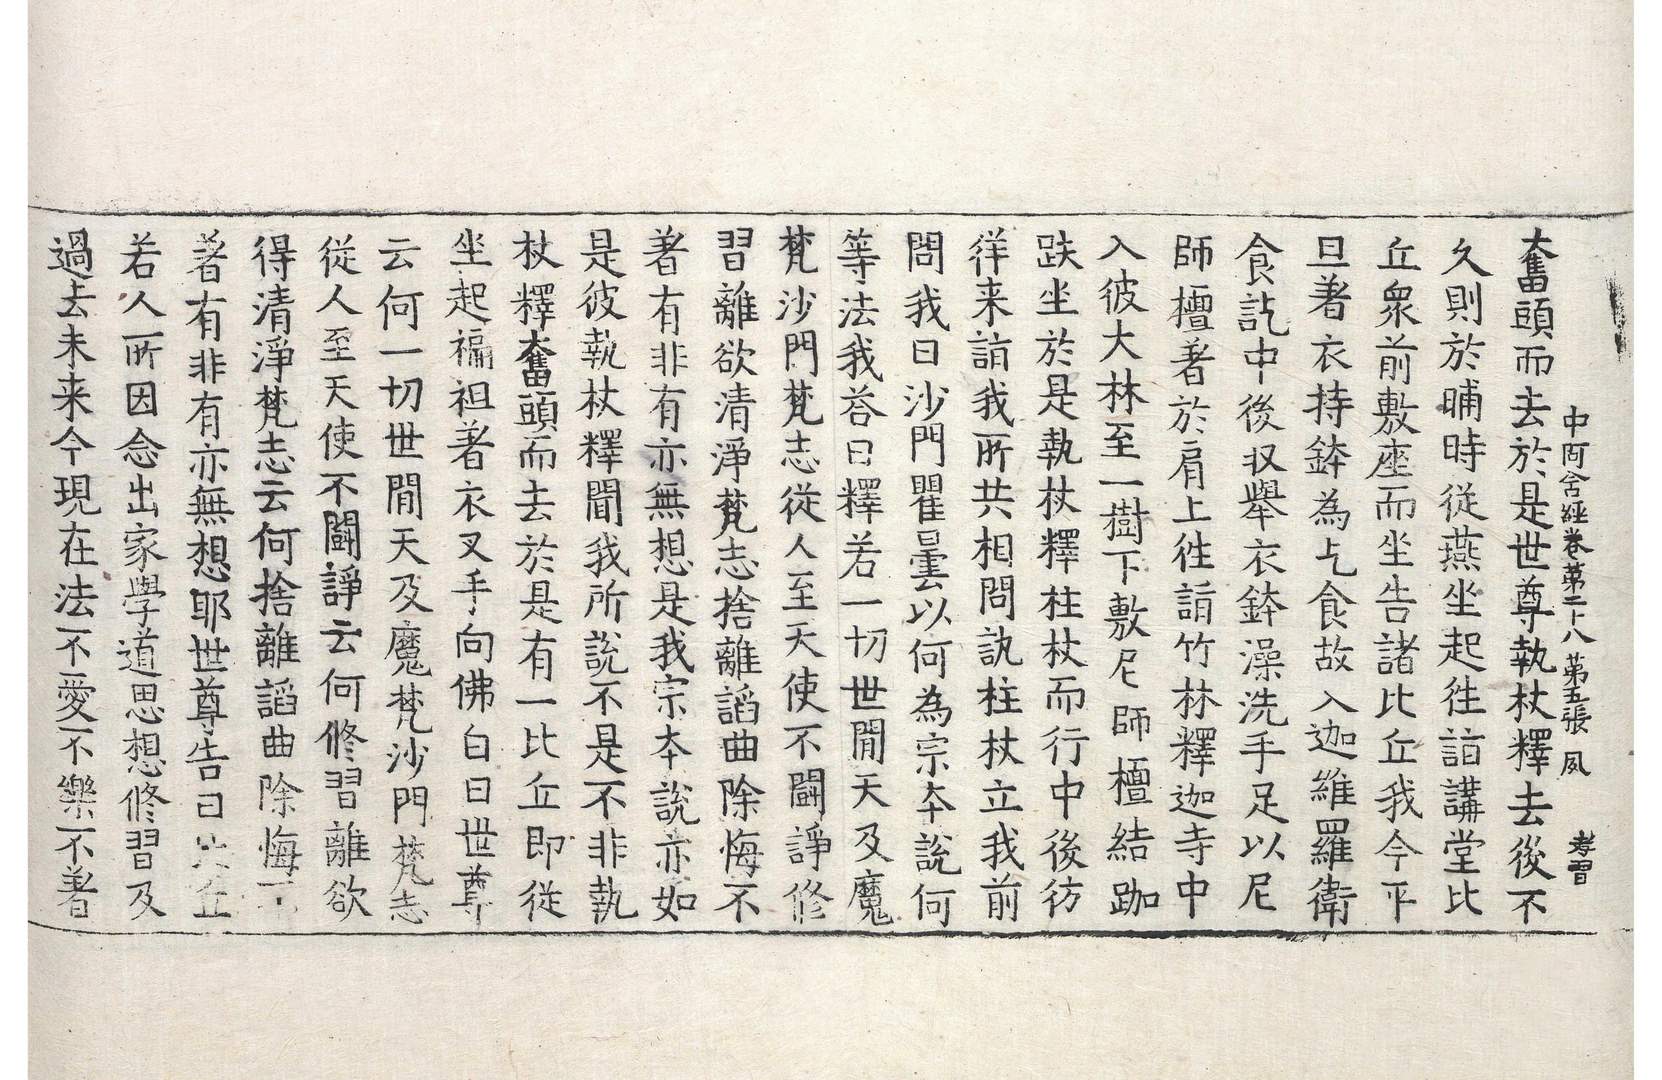 中阿含經卷第二十八 第五張 風 孝習
奮頭而去於是世尊執杖釋去後不
久則於晡時從燕坐起往詣講堂比
丘衆前敷座而坐告諸比丘我今平
旦著衣持鉢為乞食故入迦維羅衛
食訖中後収舉衣鉢澡洗手足以尼
師檀著於肩上往詣竹林釋迦寺中
入彼大林至一樹下敷尼師檀結跏
趺坐於是執杖釋柱杖而行中後彷
徉来詣我所共相問訊柱杖立我前
問我曰沙門瞿曇以何為宗本說何
等法我荅曰釋若一切世間天及魔
梵沙門梵志從人至天使不鬪諍修
習離欲清淨梵志捨離諂曲除悔不
著有非有亦無想是我宗本說亦如
是彼執杖釋聞我所說不是不非執
杖釋奮頭而去於是有一比丘即從
坐起褊袒著衣叉手向佛白曰世尊
云何一切世間天及魔梵沙門梵志
從人至天使不鬪諍云何修習離欲
得清淨梵志云何捨離諂曲除悔不
著有非有亦無想耶世尊告曰比丘
若人所因念出家學道思想修習及
過去未来今現在法不愛不樂不著